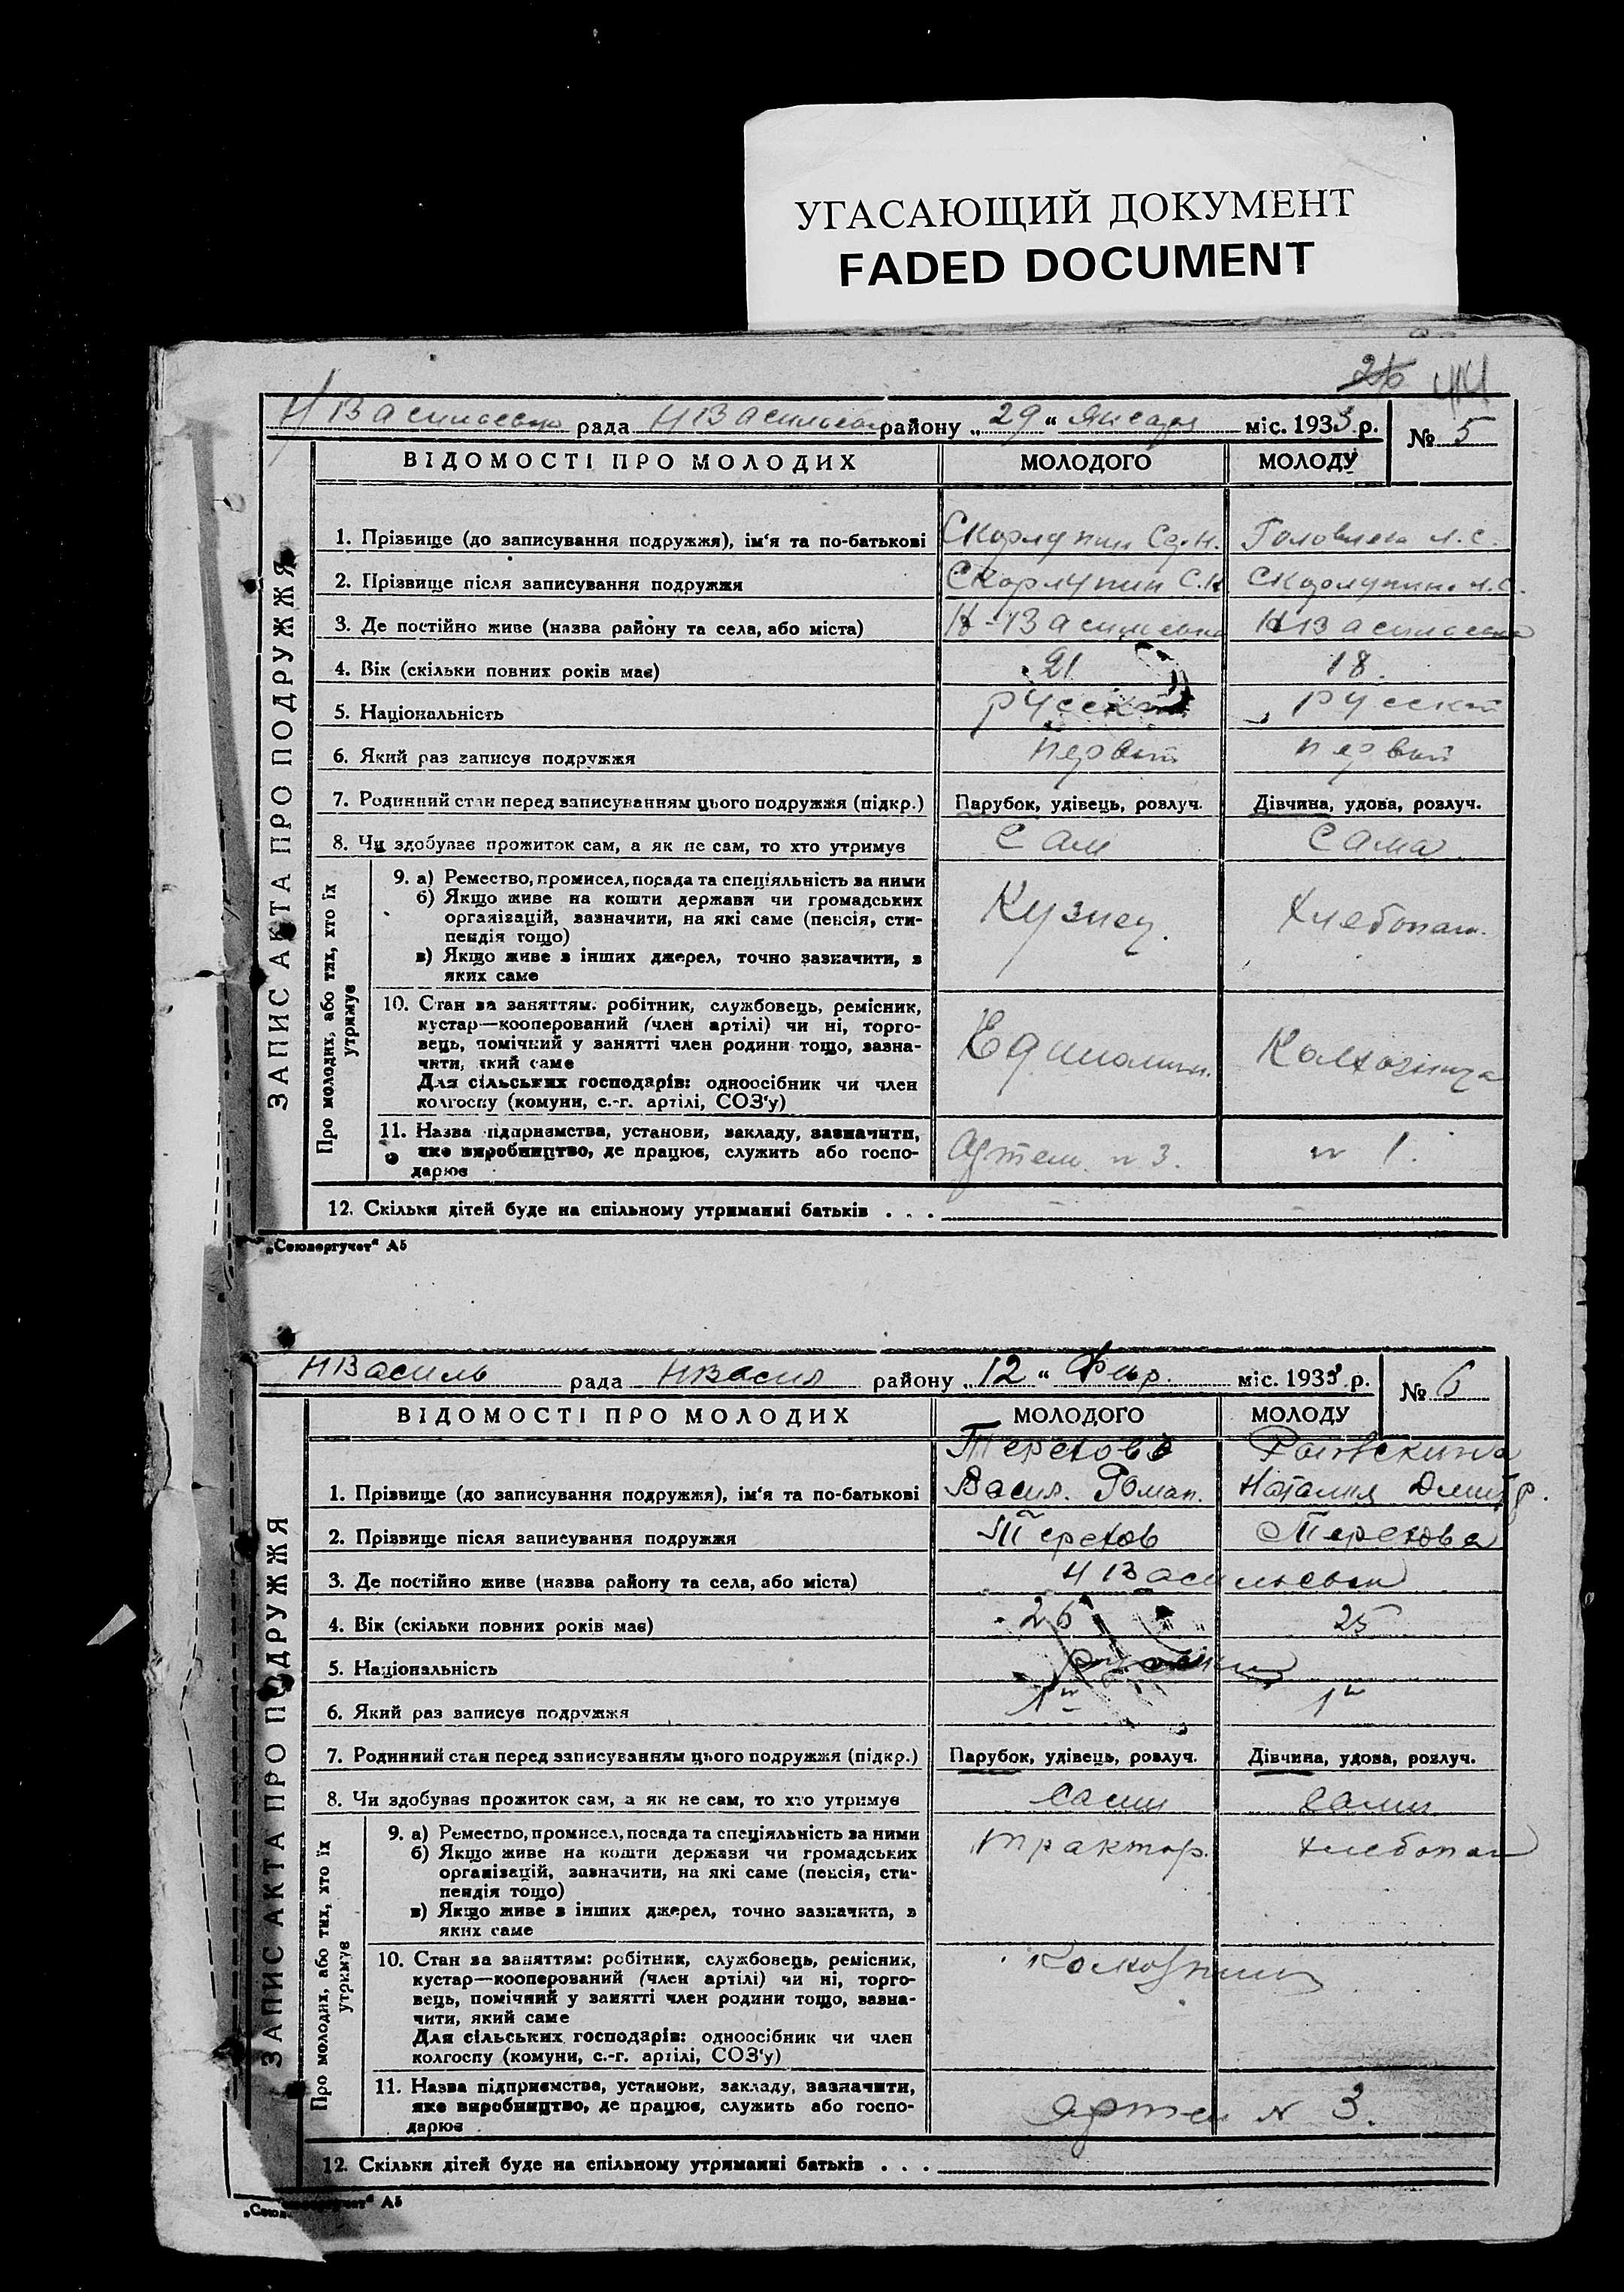 УГАСАЮЩИЙ ДОКУМЕНТ
FADED DOCUMENT
26 44
рада района „29“ Января міс. 1933 р. № 5
ВІДОМОСТІ ПРО МОЛОДИХ МОЛОДОГО МОЛОДУ
ЗАПИС АКТА ПРО ПОДРУЖЖЯ
1. Прізвище (до записування подружжя), ім‘я та по-батькові Скорлупин
2. Прізвище після записування подружжя Скорлупин С. Скорлупина
3. Де постійно живе (назва району та села, або міста) Н-Васильевка НВасильевка
4. Вік (скільки повних років має) 21 18.
5. Національність русский русская
6. Який раз записує подружжя первый первый
7. Родинний стан перед записуванням цього подружжя (підкр.) Парубок, удівець, розлуч. Дівчина, удова, розлуч.
8. Чи здобуває прожиток сам, а як не сам, то хто утримує Сам Сама
Про молодих, або тих, хто їх утримує
9. а) Ремество, промисел, посада та спеціяльність за ними
б) Якщо живе на кошти держави чи громадських
організацій, зазначити, на які саме (пенсія, сти-
пендія тощо)
Кузнец. Хлебопаш.
в) Якщо живе з інших джерел, точно зазначити, з
яких саме
10. Стан за заняттям: робітник, службовець, ремісник,
кустар—кооперований (член артілі) чи ні, торго-
вець, помічний у занятті член родини тощо, зазна-
чити, який саме
Колхозница
Для сільських господарів: одноосібник чи член
колгоспу (комуни, с.-г. артілі, СОЗ‘у)
11. Назва підприємства, установи, закладу, зазначити,
яке виробництво, де працює, служить або госпо-
дарює
Артель № 3. № 1.
12. Скільки дітей буде на спільному утриманні батьків . . .
„Союзоргучет“ А5
НВасиль рада НВасил району „12“ Февр. міс. 1933 р. № 6
ВІДОМОСТІ ПРО МОЛОДИХ МОЛОДОГО МОЛОДУ
ЗАПИС АКТА ПРО ПОДРУЖЖЯ
Терехов
1. Прізвище (до записування подружжя), ім‘я та по-батькові Васил. Роман. Наталия Дмитр.
2. Прізвище після записування подружжя Терехов Терехова
3. Де постійно живе (назва району та села, або міста) НВасильевка
4. Вік (скільки повних років має) 26 25
5. Національність
6. Який раз записує подружжя 1й 1й
7. Родинний стан перед записуванням цього подружжя (підкр.) Парубок, удівець, розлуч. Дівчина, удова, розлуч.
8. Чи здобуває прожиток сам, а як не сам, то хто утримує сами сами
Про молодих, або тих, хто їх утримує
9. а) Ремество, промисел, посада та спеціяльність за ними
трактор. хлебопаш
б) Якщо живе на кошти держави чи громадських
організацій, зазначити, на які саме (пенсія, сти-
пендія тощо)
в) Якщо живе з інших джерел, точно зазначити, з
яких саме
10. Стан за заняттям: робітник, службовець, ремісник,
кустар—кооперований (член артілі) чи ні, торго-
вець, помічний у занятті член родини тощо, зазна-
чити, який саме
Для сільських господарів: одноосібник чи член
колгоспу (комуни, с.-г. артілі, СОЗ‘у)
11. Назва підприємства, установи, закладу, зазначити,
яке виробництво, де працює, служить або госпо-
дарює
Артель № 3.
12. Скільки дітей буде на спільному утриманні батьків . . .
А5